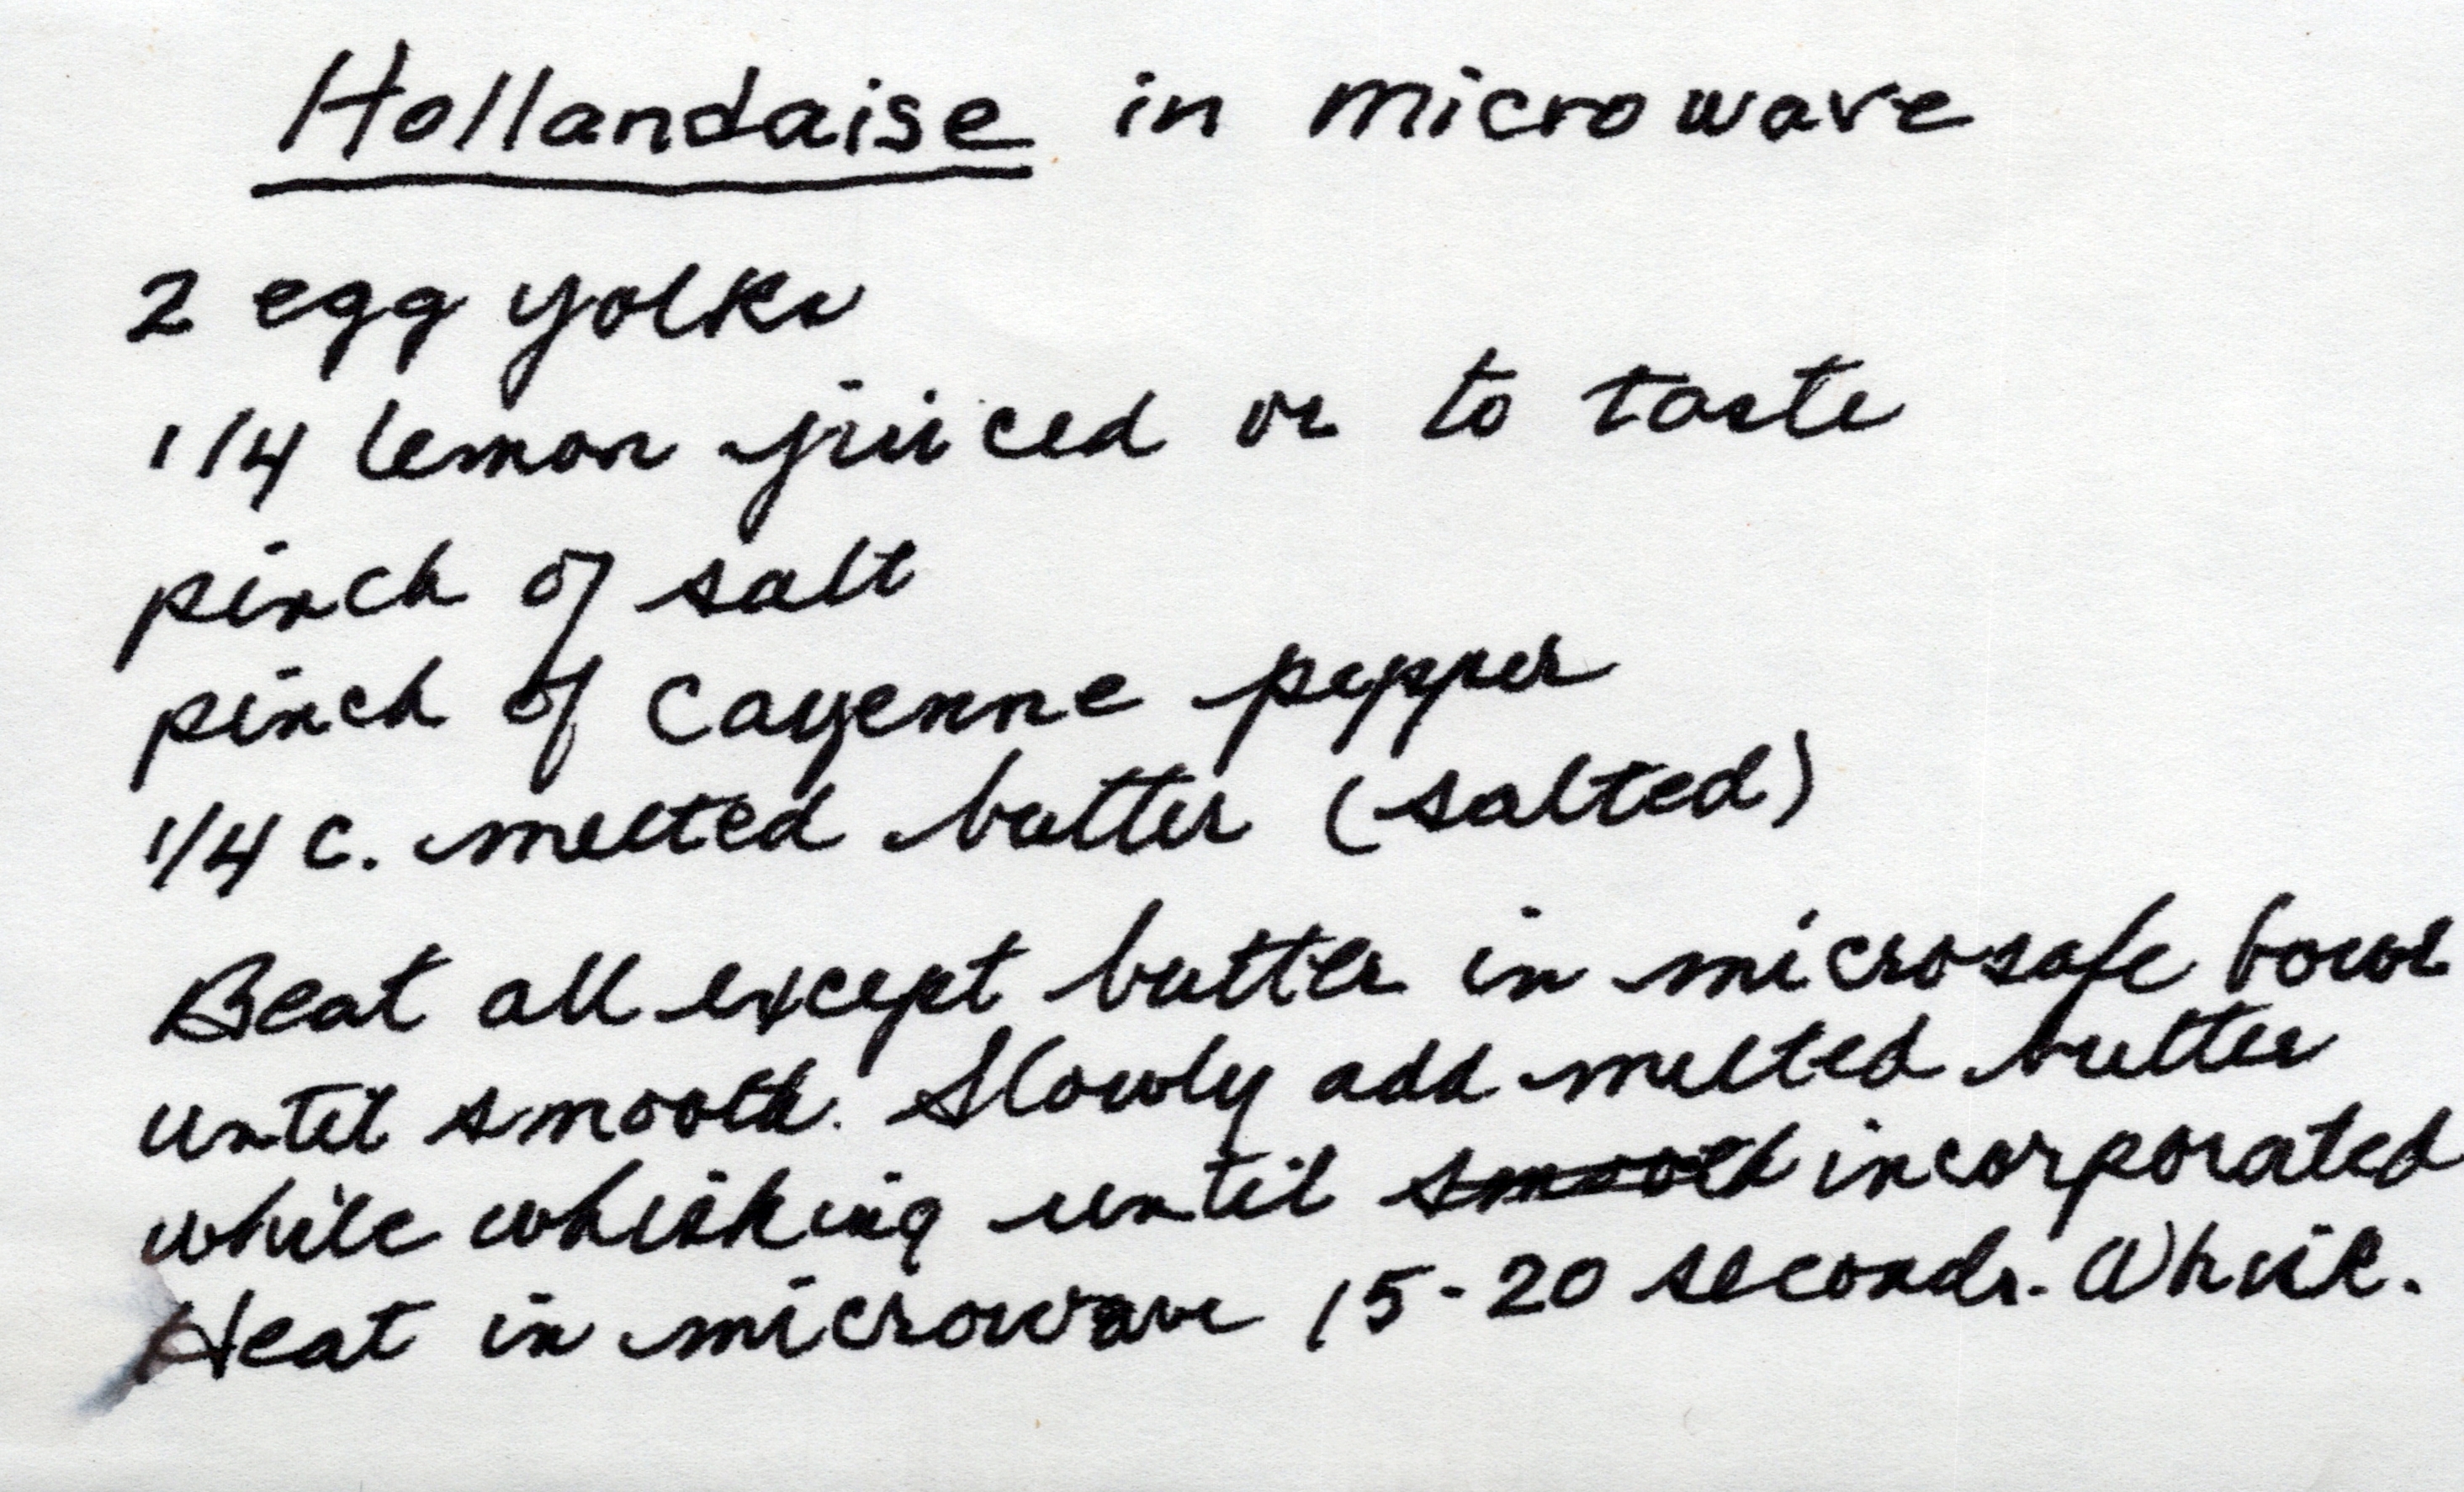 Hollandaise in microwave
2 egg yolks
1/4 lemon juiced or to taste
pinch of salt
pinch of cayenne pepper
1/4 c. melted butter (salted)
Beat all except butter in microsafe bowl
until smooth. Slowly add melted butter
while whisking until smooth incorporated
Heat in microwave 15-20 seconds. Whisk.